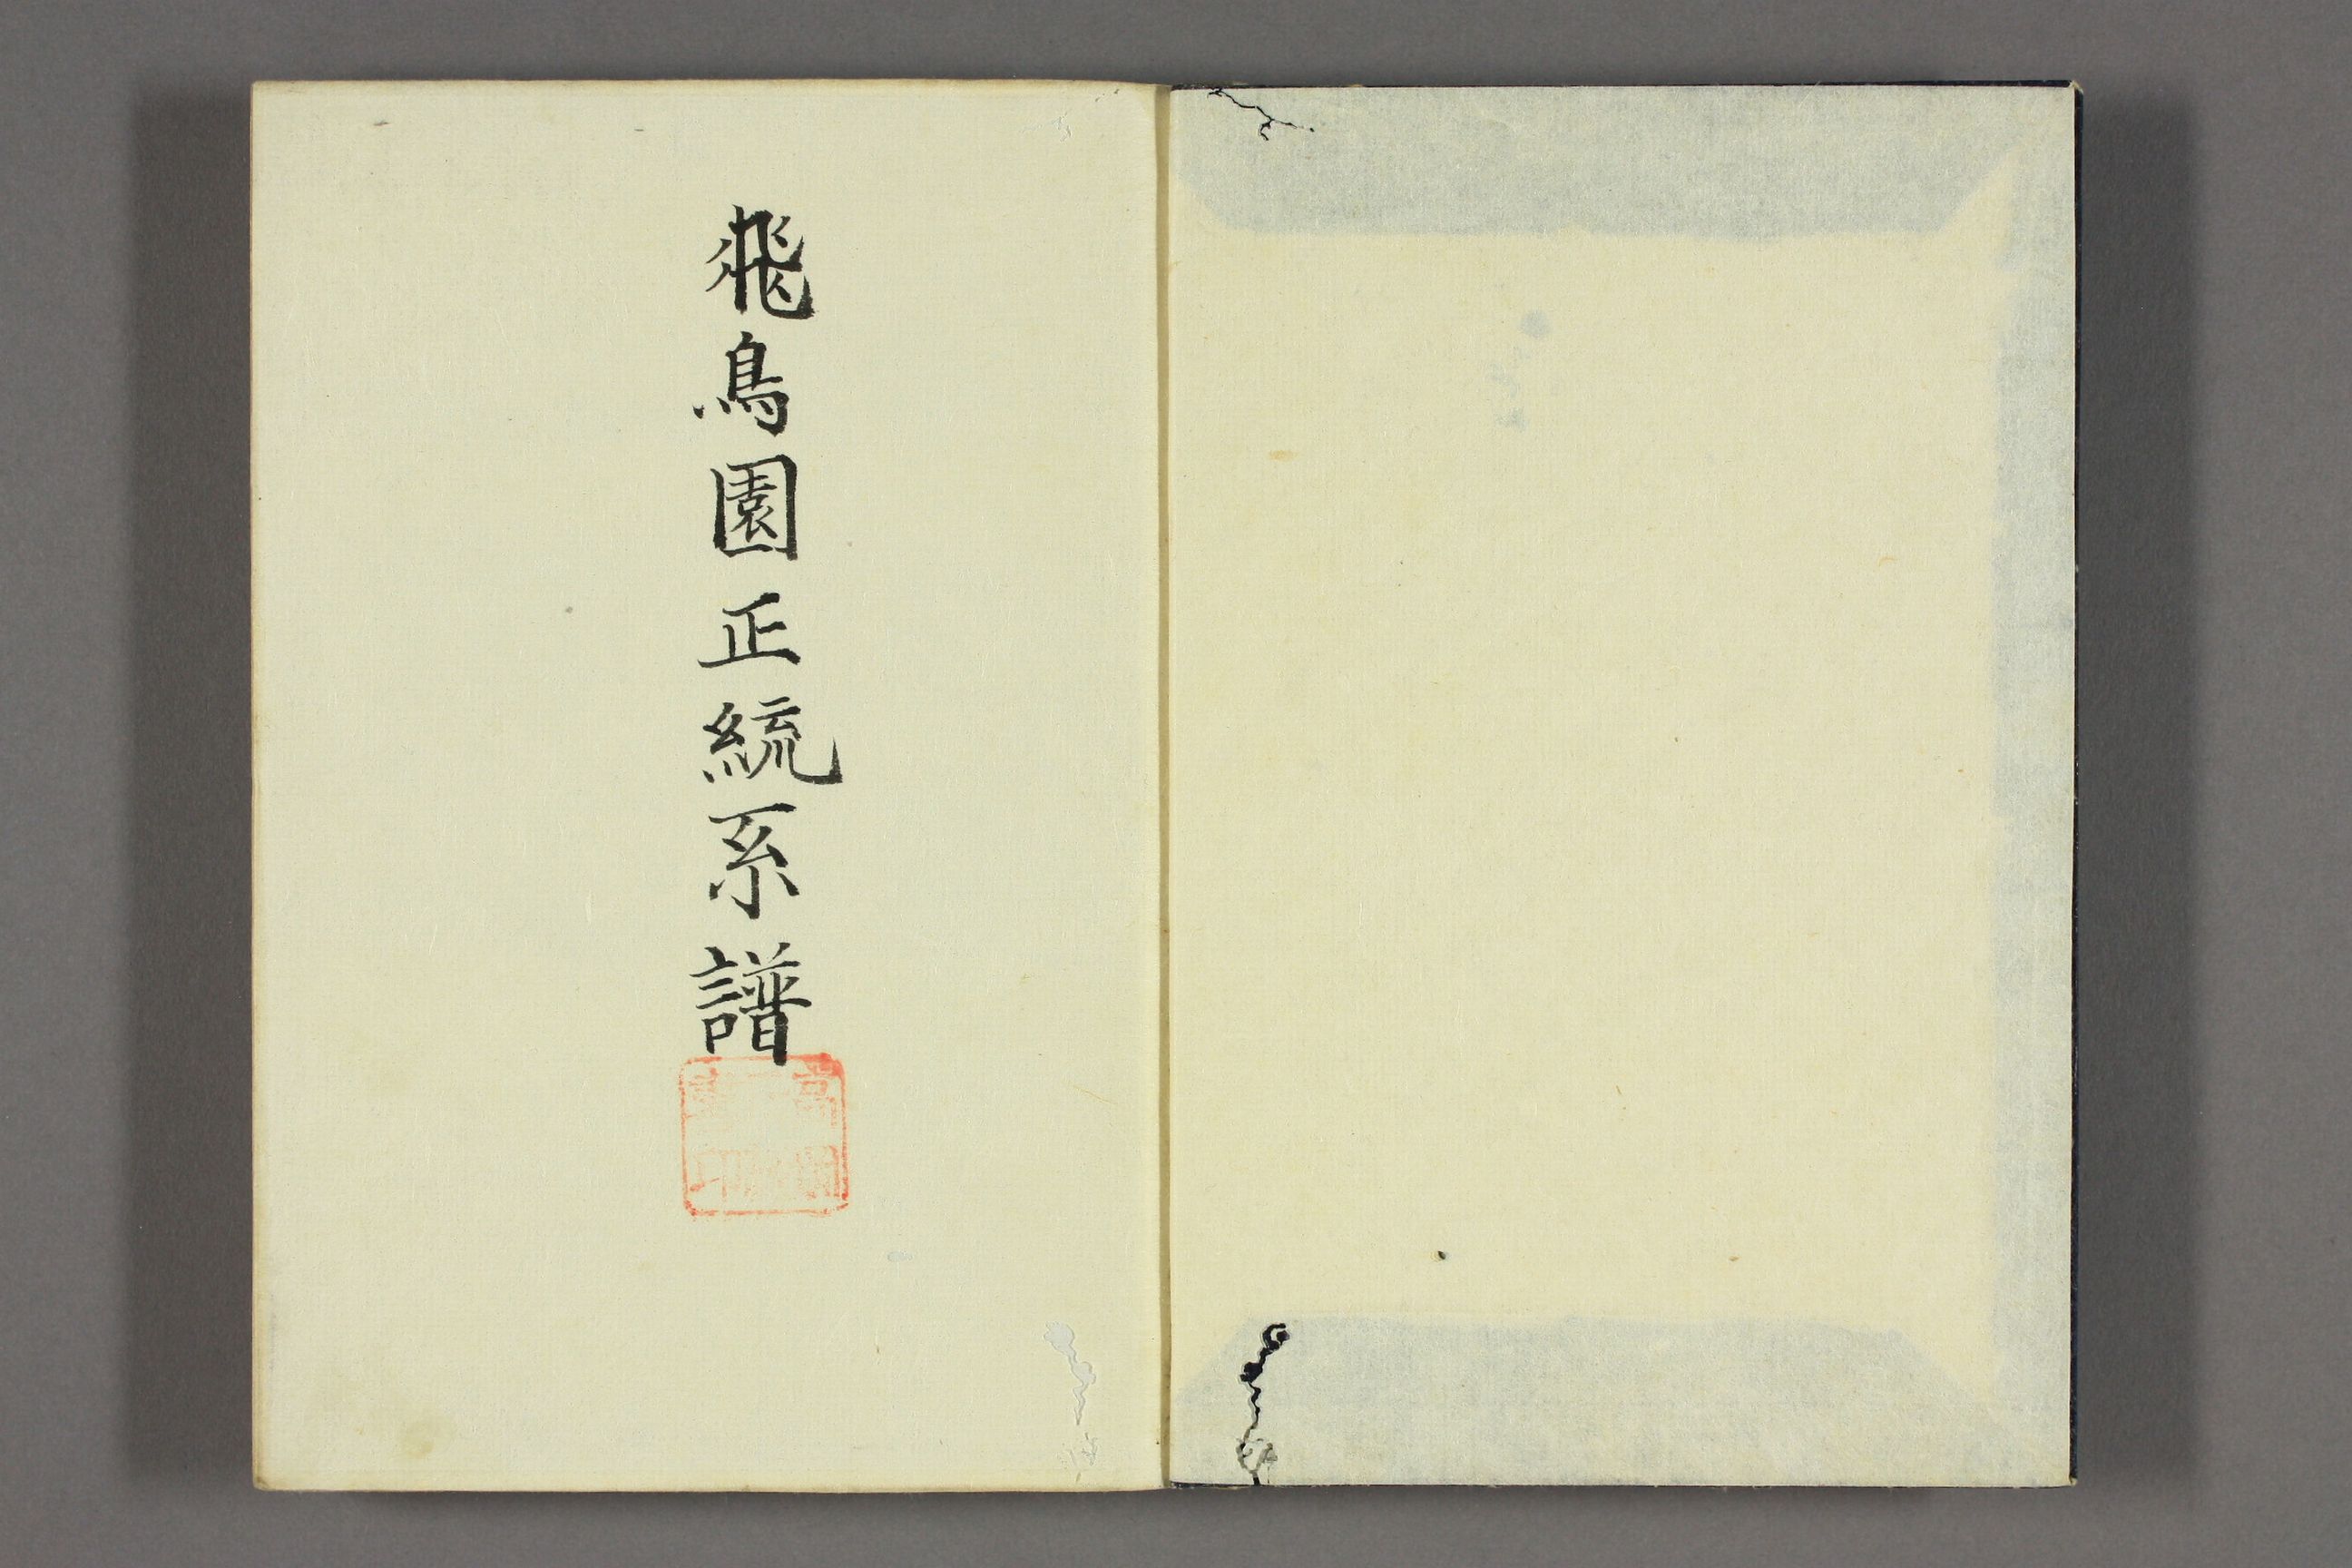 飛鳥園正統系譜